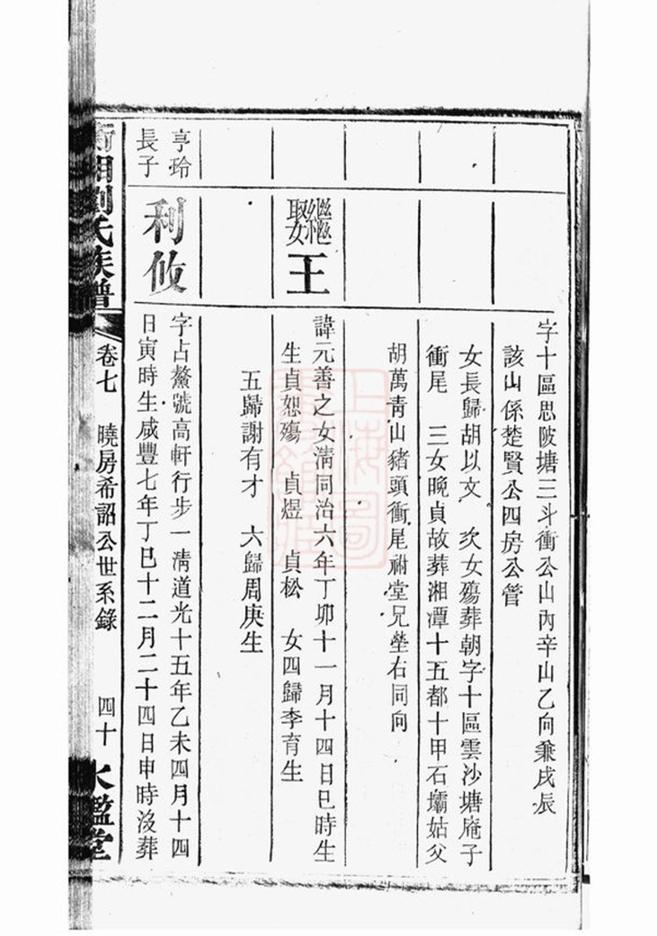 字十區思陂塘三斗衝公山內辛山乙向兼戌辰
該山係楚賢公四房公管
女長歸胡以文 次女殤葬朝字十區雲沙塘庵子
衝尾 三女晚貞故葬湘潭十五都十甲石壩姑父
胡萬青山豬頭衝尾祔堂兄塋右同向
繼娶王
諱元善之女清同治六年丁卯十一月十四日巳時生
生貞恕殤 貞煜 貞松 女四歸李育生
五歸謝有才 六歸周庚生
亨玲長子
利攸
字占鰲號高軒行步一清道光十五年乙未四月十四
日寅時生咸豐七年丁巳十二月二十四日申時沒葬
衡湘劉氏族譜 卷七 曉房希韶公世系錄 四十 水鑑堂